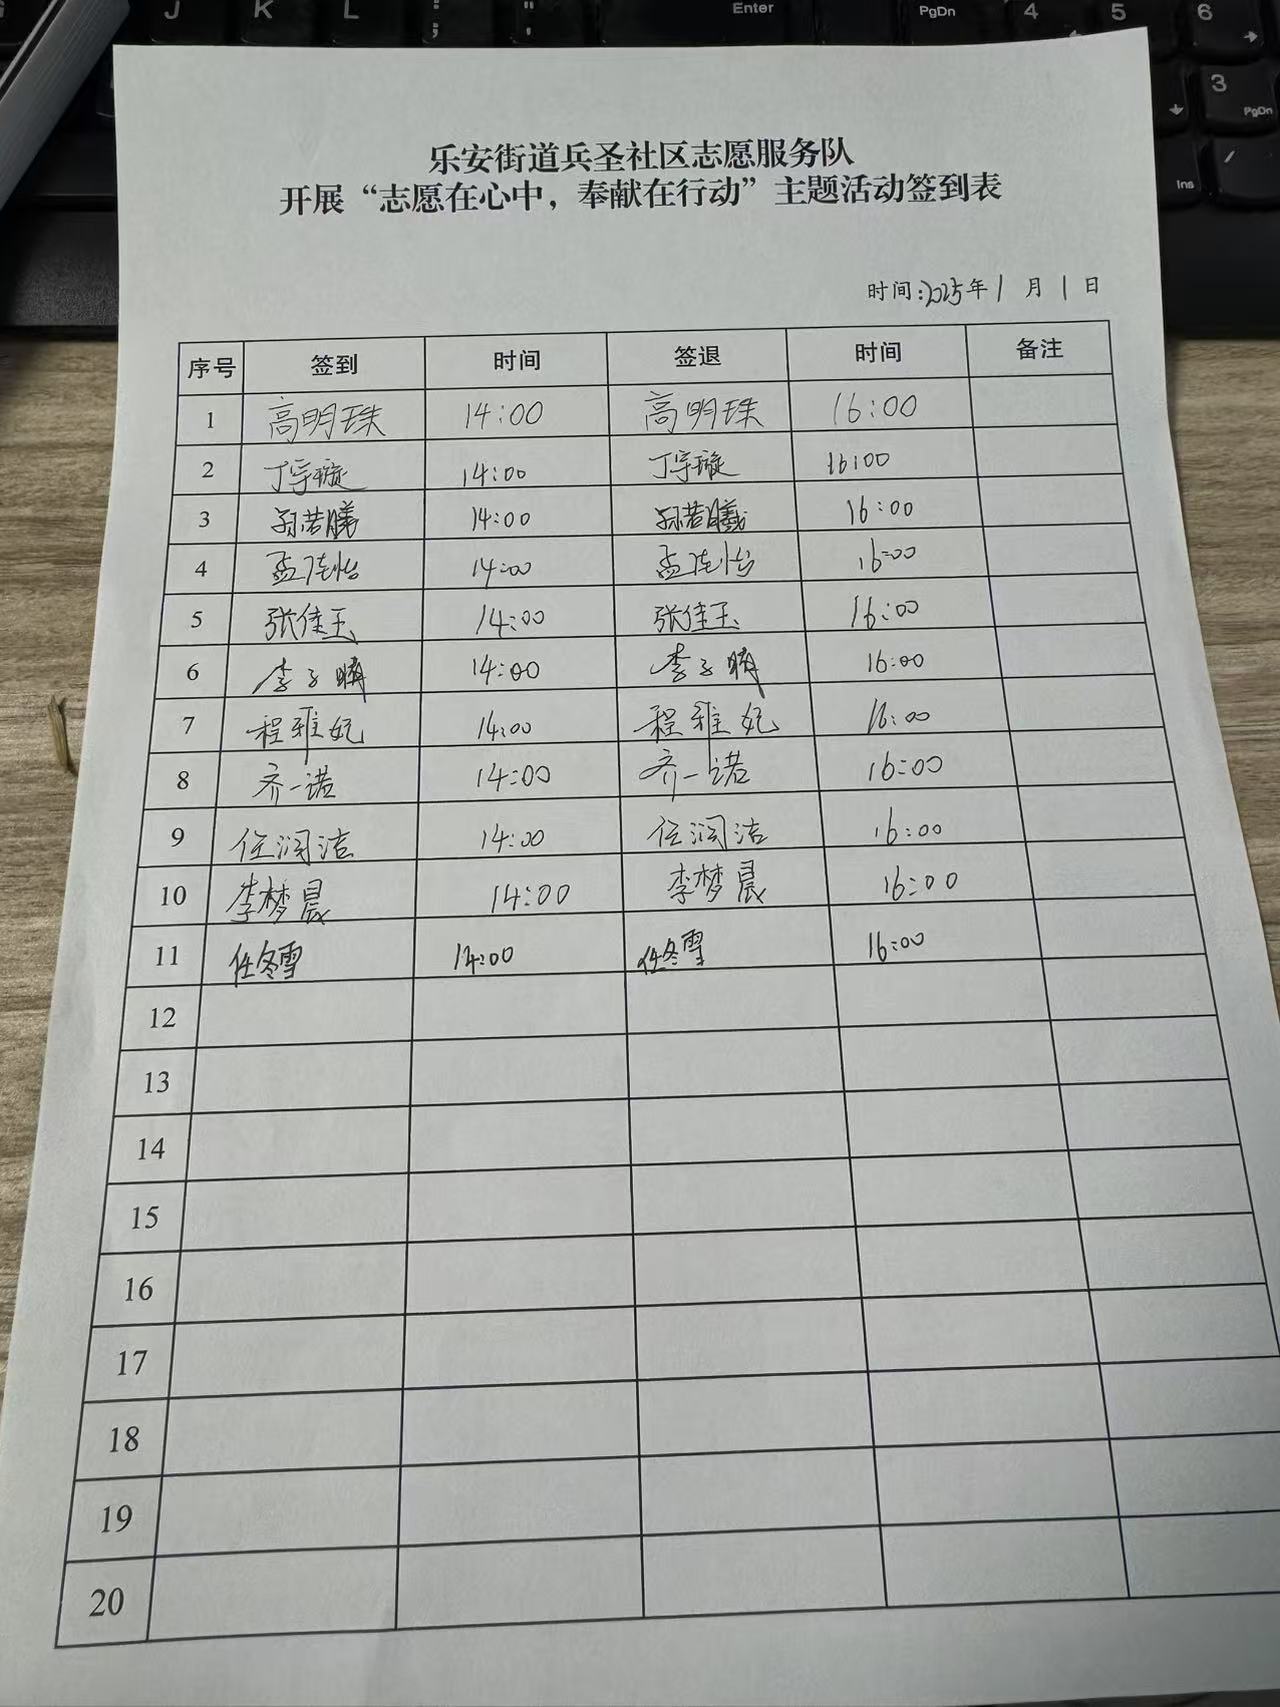 J K L ; Enter PgDn 4 5 6
3 PgDn
Ins
乐安街道兵圣社区志愿服务队
开展“志愿在心中，奉献在行动”主题活动签到表
时间:2025年1月1日
序号 签到 时间 签退 时间 备注
1 高明珠 14:00 高明珠 16:00
2 丁宇璇 14:00 丁宇璇 16:00
3 孙若曦 14:00 孙若曦 16:00
4 孟佳怡 14:00 孟佳怡 16:00
5 张佳玉 14:00 张佳玉 16:00
6 李子晴 14:00 李子晴 16:00
7 程雅妃 14:00 程雅妃 16:00
8 齐一诺 14:00 齐一诺 16:00
9 任润洁 14:00 任润洁 16:00
10 李梦晨 14:00 李梦晨 16:00
11 任冬雪 14:00 任冬雪 16:00
12
13
14
15
16
17
18
19
20